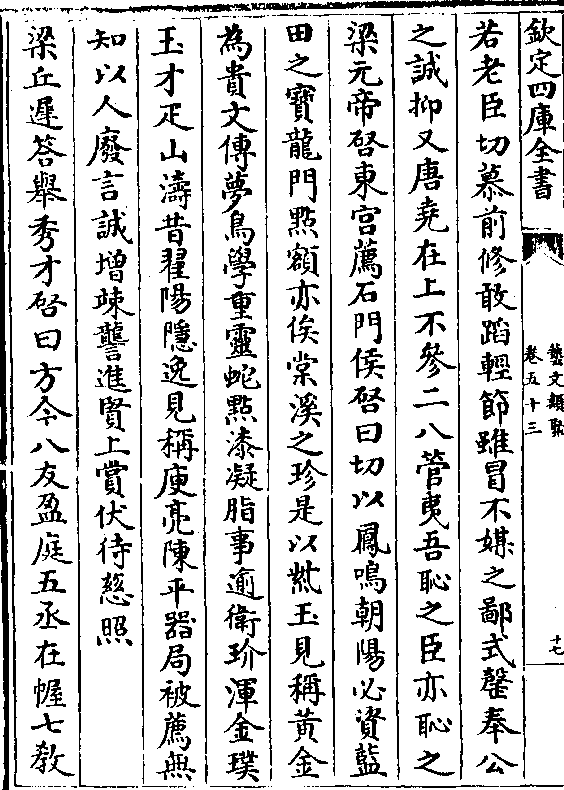 欽定四庫全書
藝文類聚
卷五十三
十七
若老臣切慕前修敢蹈輕節雖冒不媒之鄙式罄奉公
之誠抑又唐堯在上不參二八管夷吾恥之臣亦恥之
梁元帝啓東宮薦石門侯啓曰切以鳳鳴朝陽必資藍
田之寶龍門㸃額亦俟棠溪之珍是以玼玉見稱黃金
為貴文傳夢鳥學重靈蛇㸃漆凝脂事逾衛玠渾金璞
玉才疋山濤昔翟陽隱逸見稱庾亮陳平器局被薦無
知以人廢言誠增竦讋進賢上賞伏待慈照
梁丘遲答舉秀才啓曰方今八友盈庭五丞在幄七教